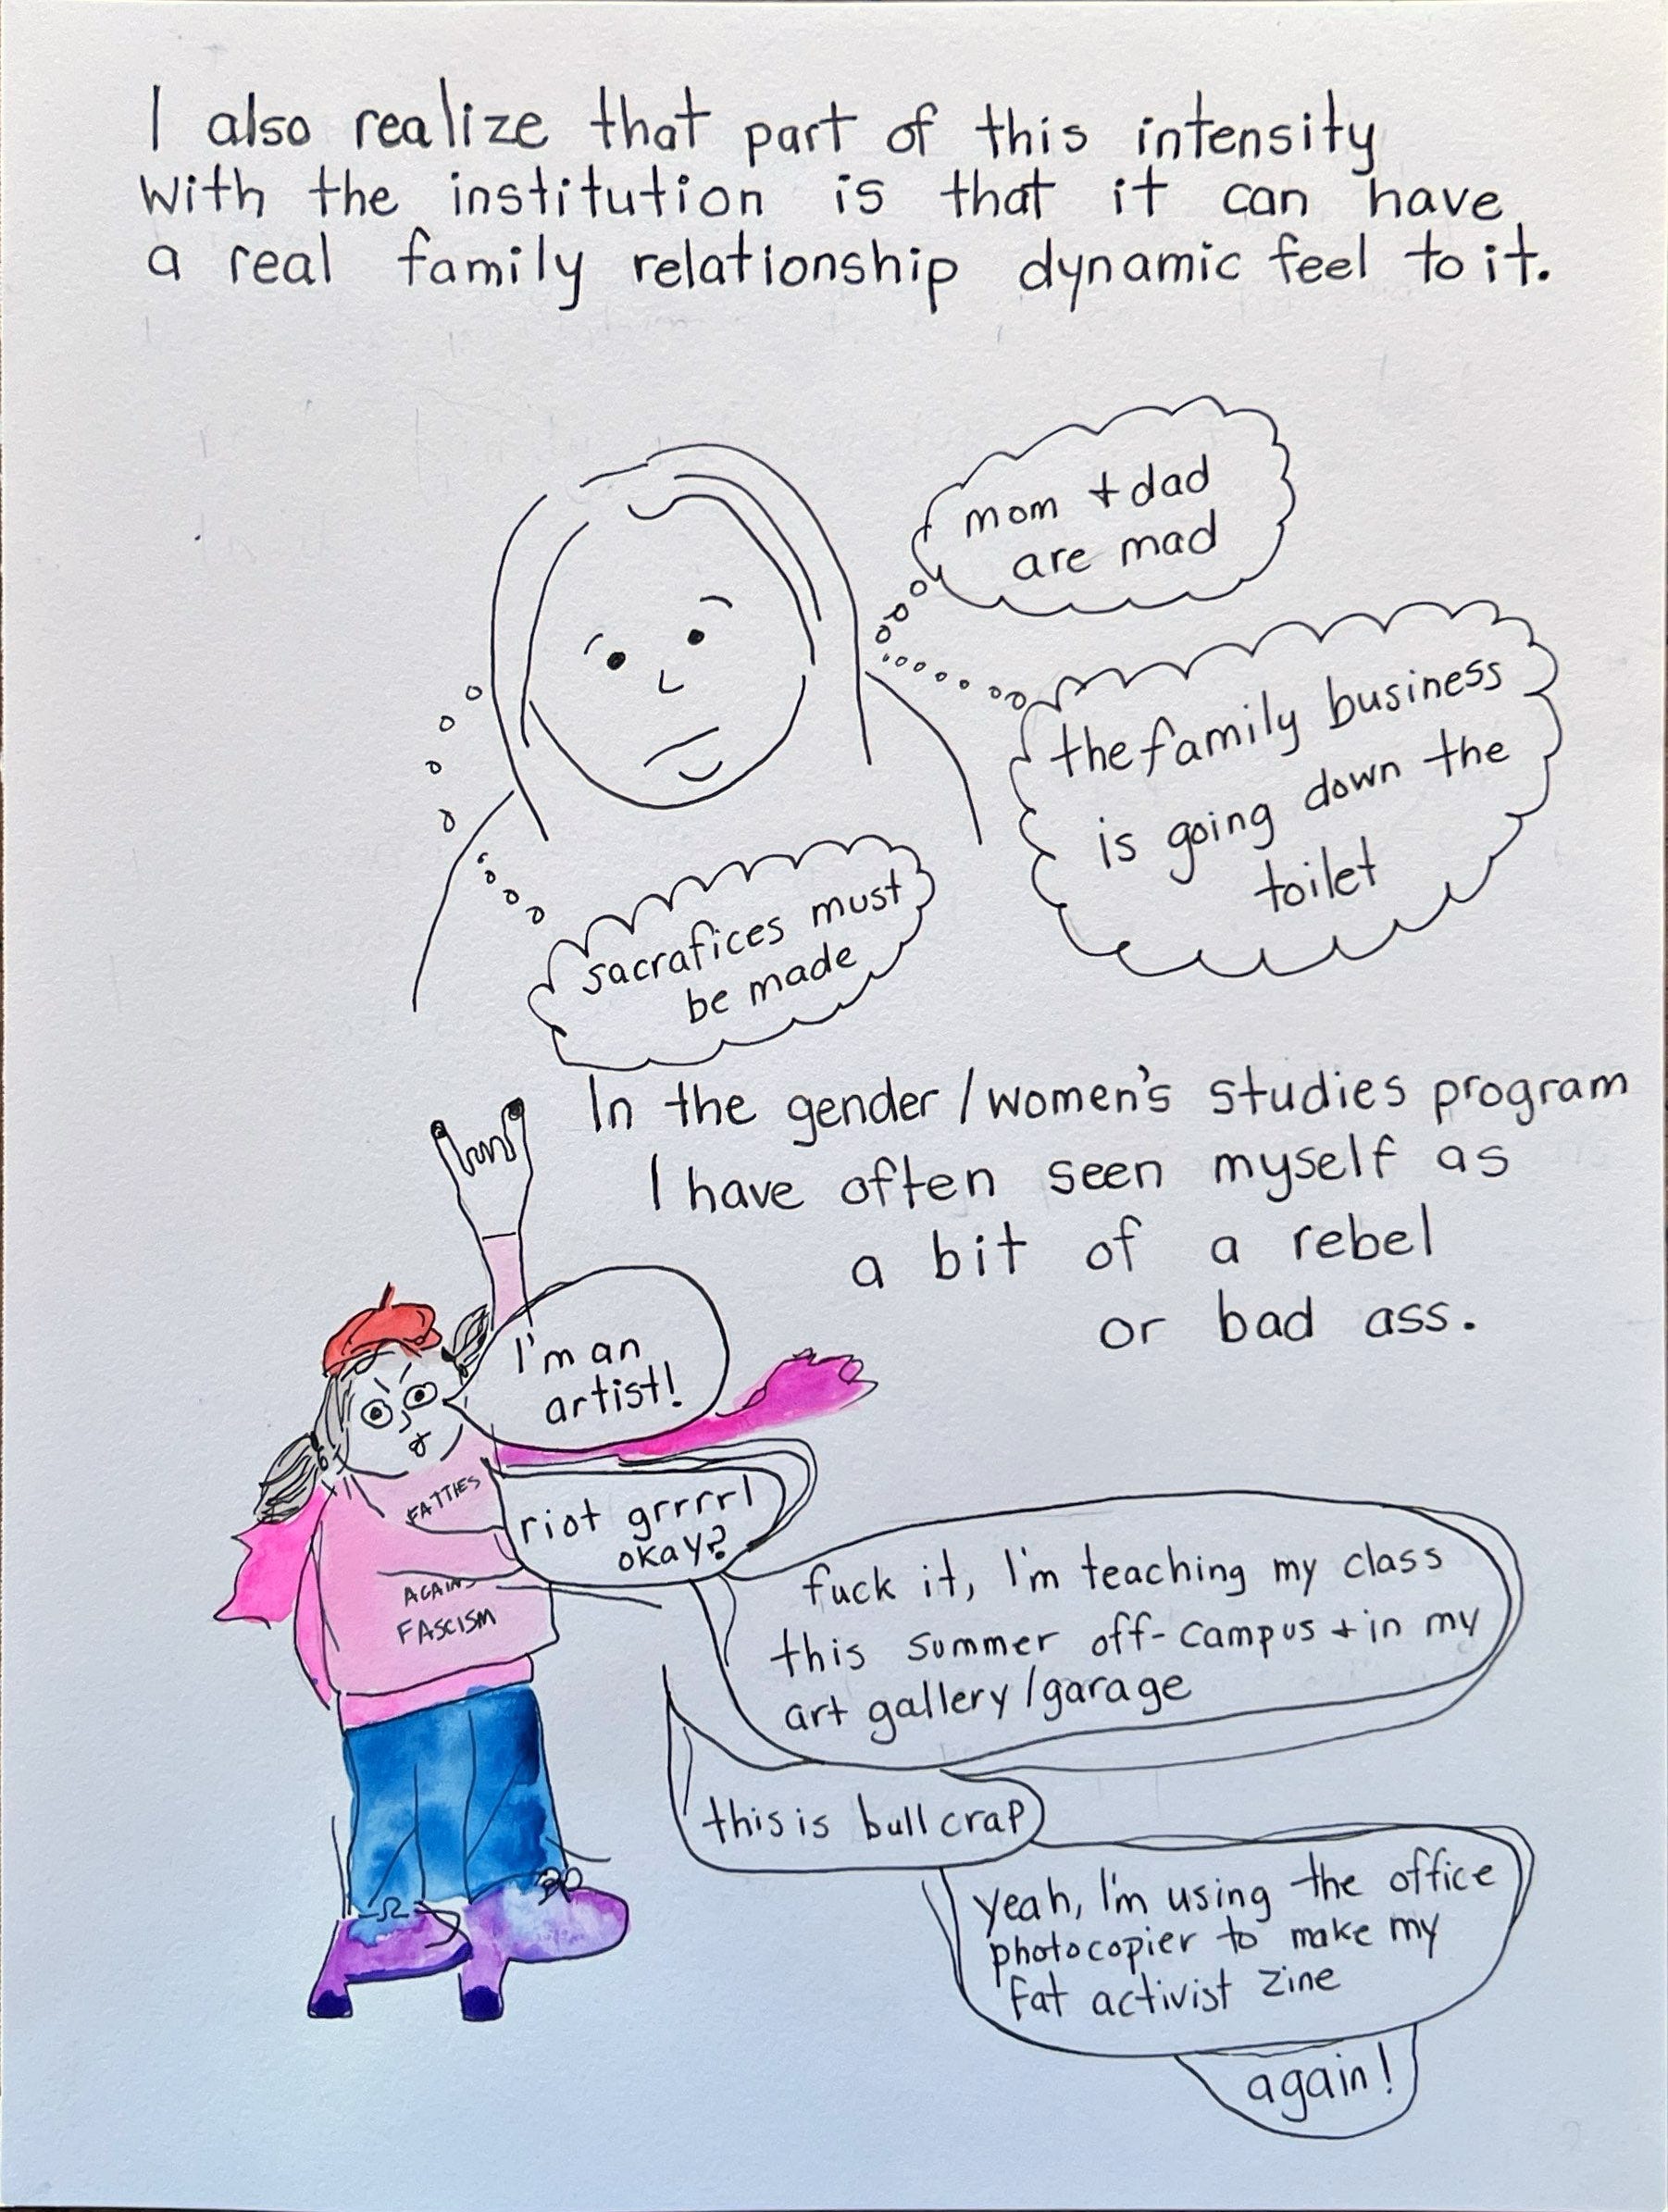 I also realize that part of this intensity
with the institution is that it can have
a real family relationship dynamic feel to it.
mom + dad
are mad
the family business
is going down the
toilet
sacrafices must
be made
In the gender/women's studies program
I have often seen myself as
a bit of a rebel
or bad ass.
I'm an
artist!
FATTIES
AGAINS
FASCISM
riot grrrrl
okay?
fuck it, I'm teaching my class
this summer off-campus + in my
art gallery/garage
this is bull crap
yeah, I'm using the office
photocopier to make my
fat activist zine
again!